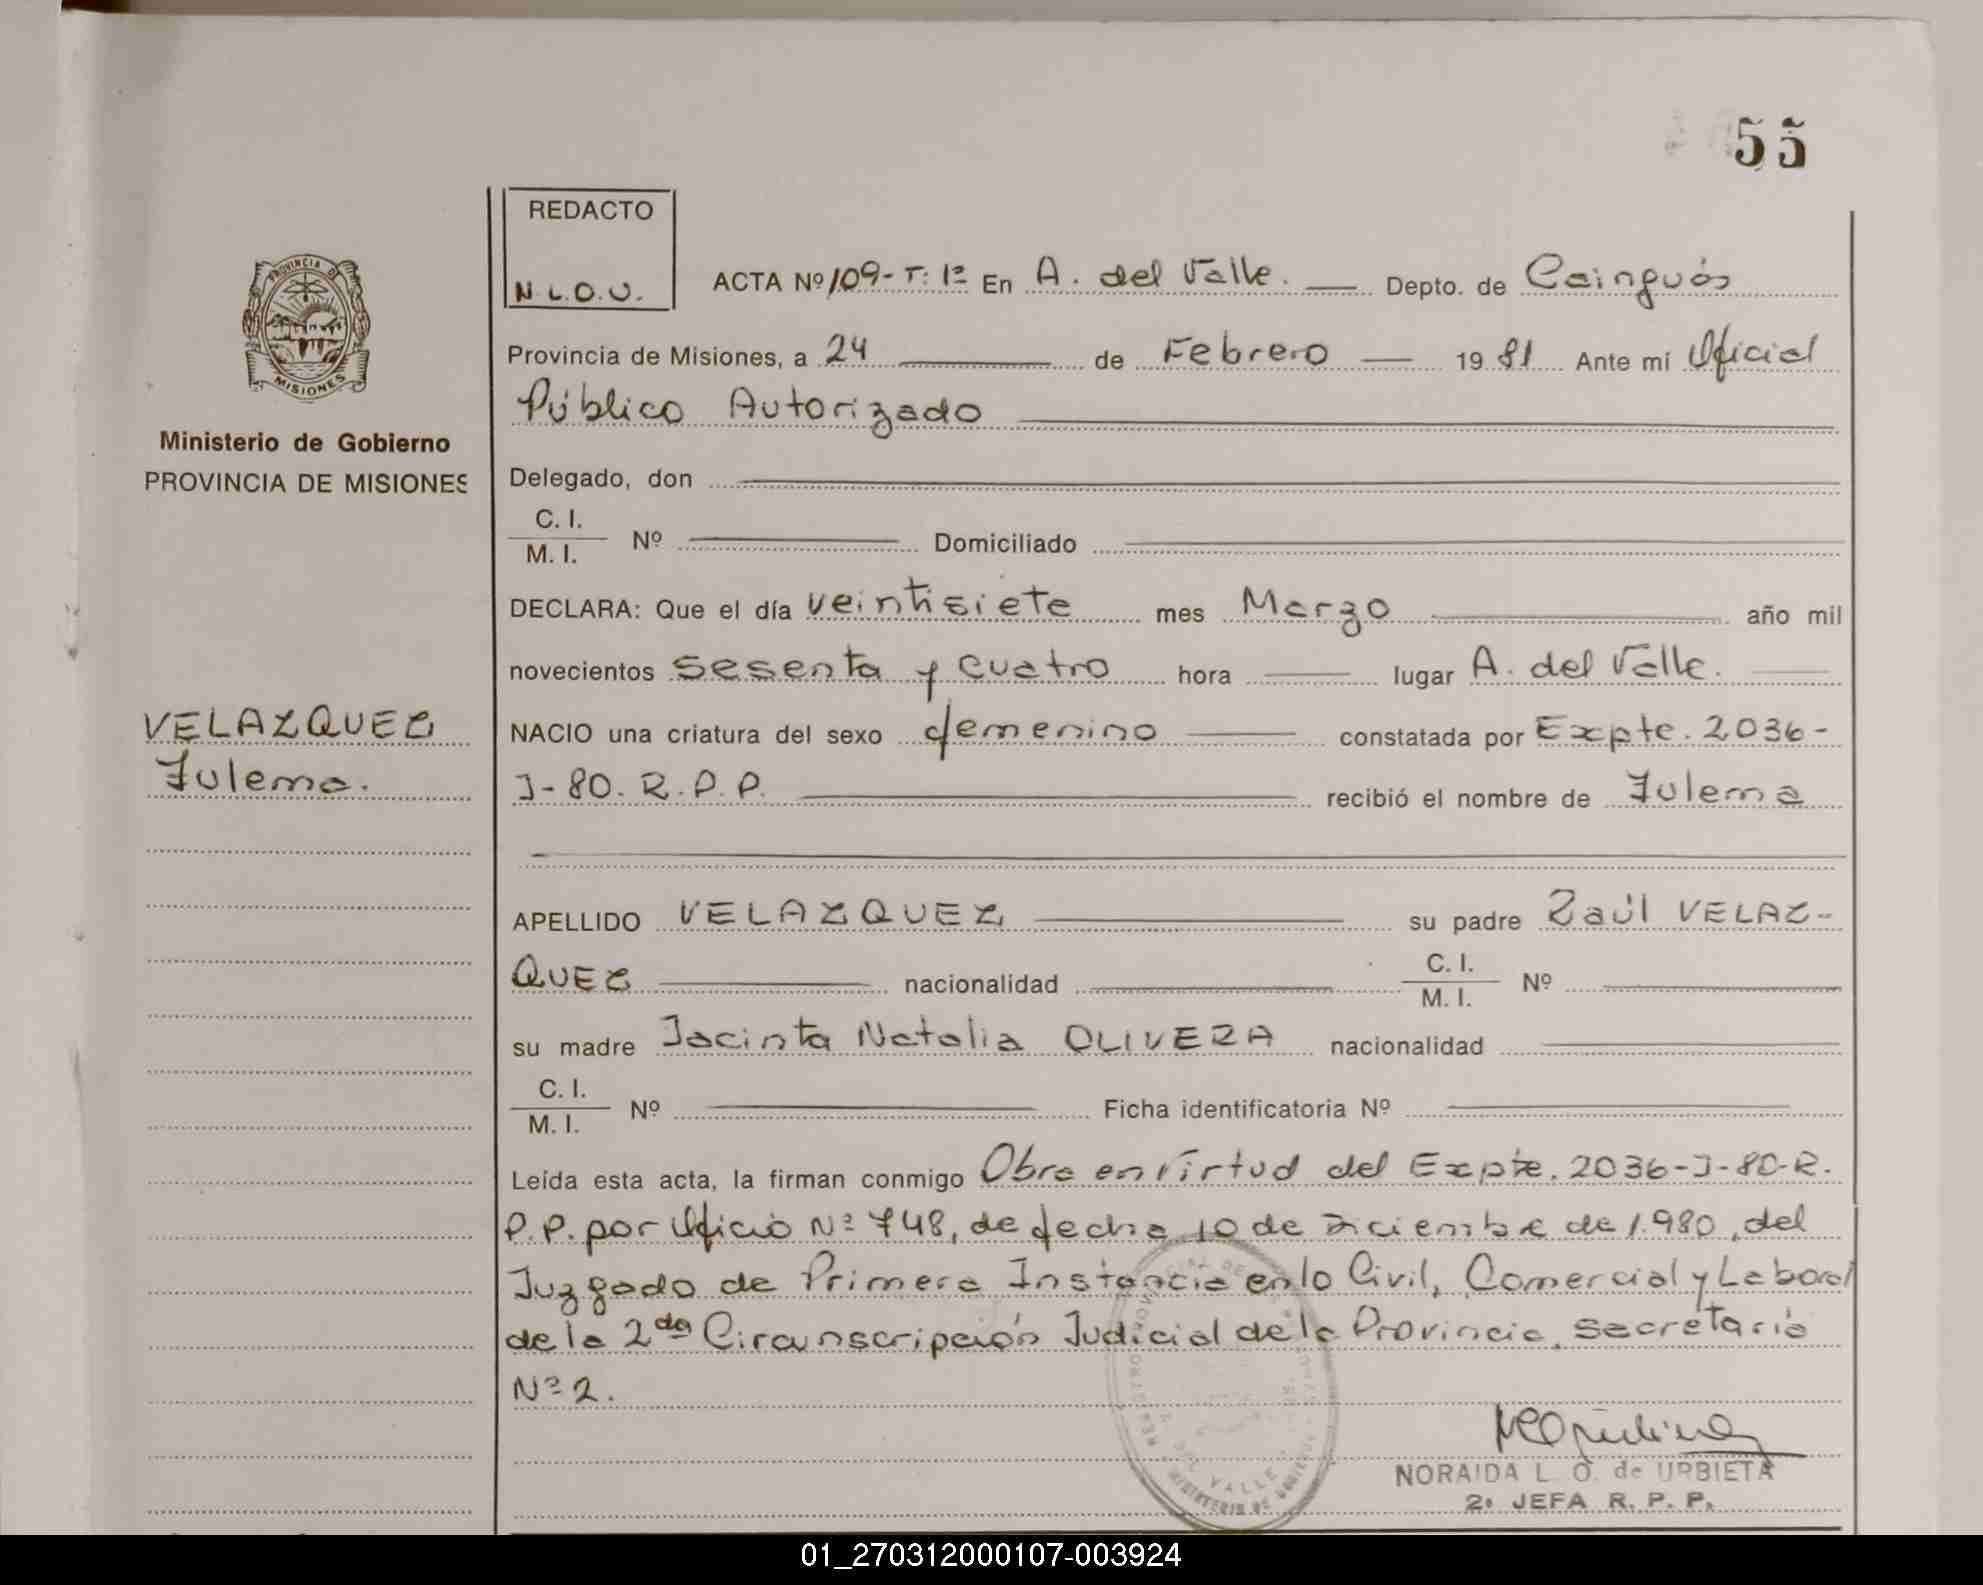 55
REDACTO
N.L.O.U.
PROVINCIA DE
MISIONES
Ministerio de Gobierno
PROVINCIA DE MISIONES
ACTA Nº 109-T: 1º En A. del Valle. Depto. de Cainguás
Provincia de Misiones, a 24 de Febrero 1981 Ante mí Oficial
Público Autorizado
Delegado, don
C. I.
M. I. Nº Domiciliado
DECLARA: Que el día veintisiete mes Marzo año mil
novecientos sesenta y cuatro hora lugar A. del Valle.
VELAZQUEZ
Zulema.
NACIO una criatura del sexo femenino constatada por Expte. 2036-
J-80. R.P.P. recibió el nombre de Zulema
APELLIDO VELAZQUEZ su padre Raúl VELAZ-
QUEZ nacionalidad C. I.
M. I. Nº
su madre Jacinta Natalia OLIVERA nacionalidad
C. I.
M. I. Nº Ficha identificatoria Nº
Leída esta acta, la firman conmigo Obra en virtud del Expte. 2036-J-80-R.
P.P. por Oficio Nº 748, de fecha 10 de Diciembre de 1.980, del
Juzgado de Primera Instancia en lo Civil, Comercial y Laboral
de la 2da Circunscripción Judicial de la Provincia, secretaria
Nº 2.
NORAIDA L. O. de URBIETA
2º JEFA R. P. P.
01_270312000107-003924